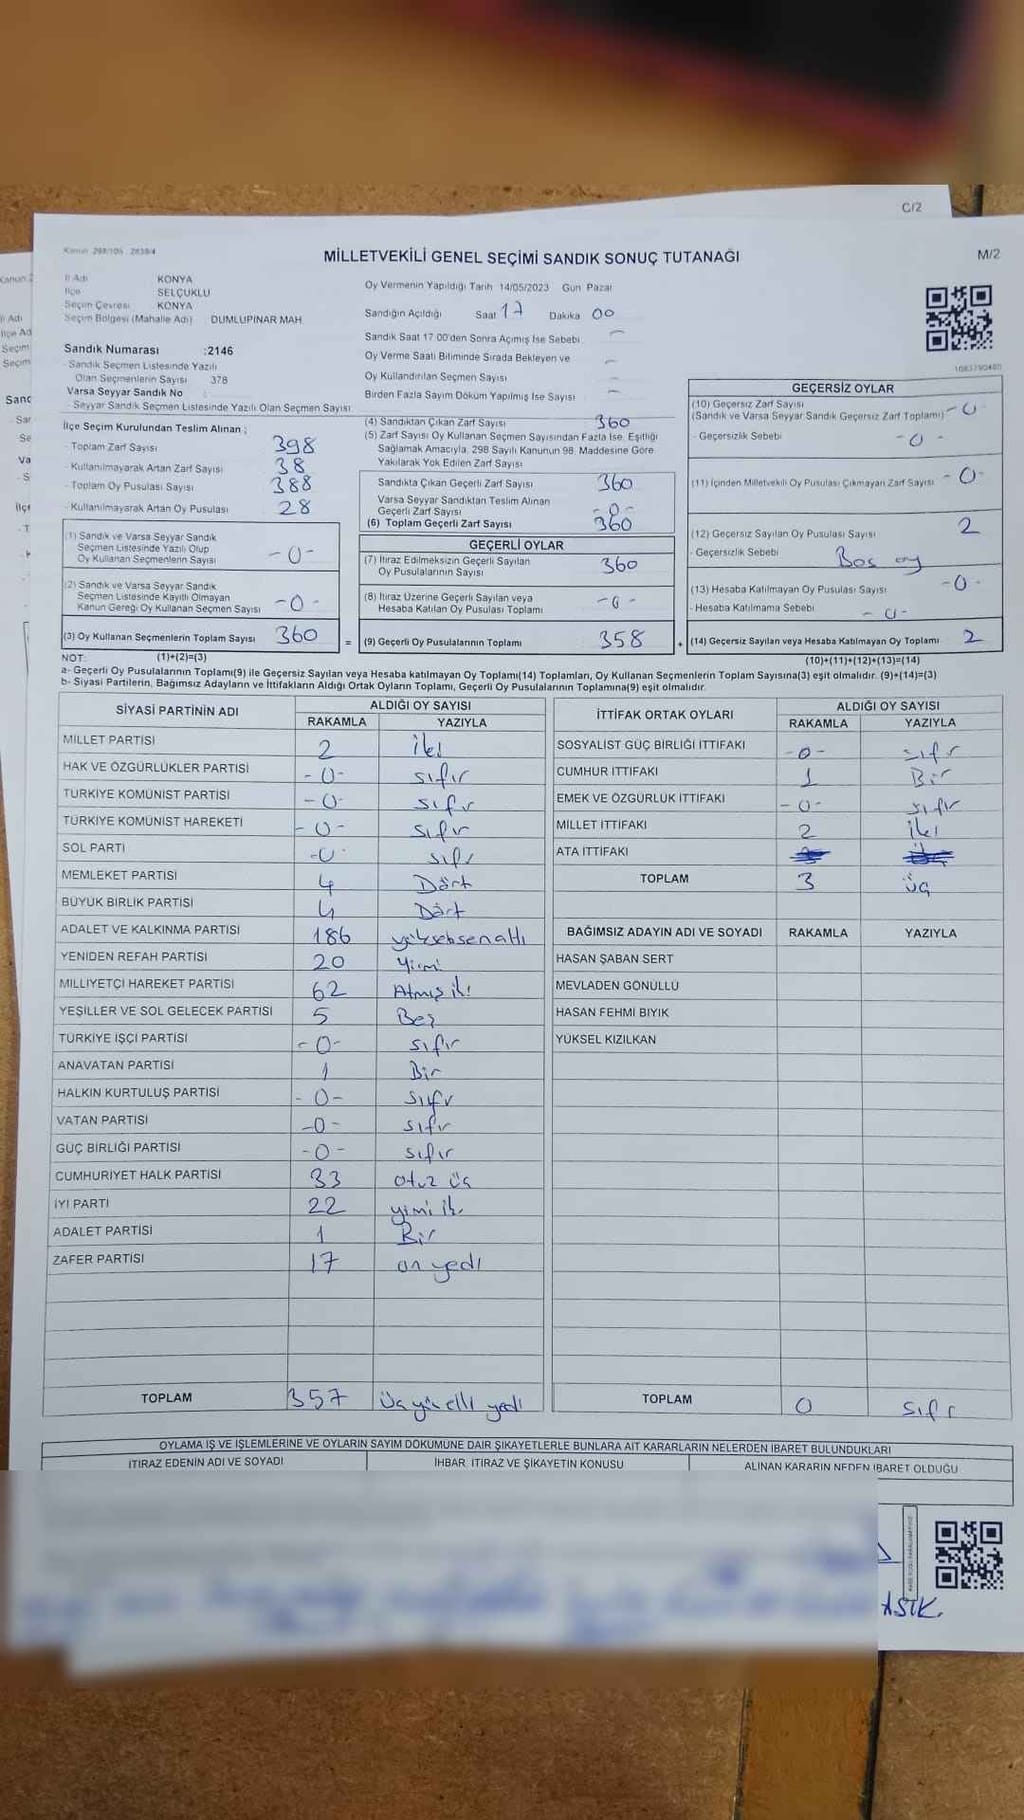 C/2
Kanun 298/105 2839/4
MİLLETVEKİLİ GENEL SEÇİMİ SANDIK SONUÇ TUTANAĞI
M/2
İl Adı KONYA
İlçe SELÇUKLU
Seçim Çevresi KONYA
Seçim Bölgesi (Mahalle Adı) DUMLUPINAR MAH.
Sandık Numarası :2146
- Sandık Seçmen Listesinde Yazılı
Olan Seçmenlerin Sayısı 378
Varsa Seyyar Sandık No
- Seyyar Sandık Seçmen Listesinde Yazılı Olan Seçmen Sayısı
Oy Vermenin Yapıldığı Tarih 14/05/2023 Gün Pazar
Sandığın Açıldığı Saat 17 Dakika 00
Sandık Saat 17 00'den Sonra Açımış İse Sebebi
Oy Verme Saati Bitiminde Sırada Bekleyen ve
Oy Kullandırılan Seçmen Sayısı
Birden Fazla Sayım Döküm Yapılmış İse Sayısı
İlçe Seçim Kurulundan Teslim Alınan ;
- Toplam Zarf Sayısı 398
- Kullanılmayarak Artan Zarf Sayısı 38
- Toplam Oy Pusulası Sayısı 388
- Kullanılmayarak Artan Oy Pusulası 28
(1) Sandık ve Varsa Seyyar Sandık
Seçmen Listesinde Yazılı Olup
Oy Kullanan Seçmenlerin Sayısı -0-
(2) Sandık ve Varsa Seyyar Sandık
Seçmen Listesinde Kayıtlı Olmayan
Kanun Gereği Oy Kullanan Seçmen Sayısı -0-
(3) Oy Kullanan Seçmenlerin Toplam Sayısı 360 =
(4) Sandıktan Çıkan Zarf Sayısı 360
(5) Zarf Sayısı Oy Kullanan Seçmen Sayısından Fazla İse, Eşitliği
Sağlamak Amacıyla, 298 Sayılı Kanunun 98. Maddesine Göre
Yakılarak Yok Edilen Zarf Sayısı
Sandıkta Çıkan Geçerli Zarf Sayısı 360
Varsa Seyyar Sandıktan Teslim Alınan
Geçerli Zarf Sayısı -0-
(6) Toplam Geçerli Zarf Sayısı 360
GEÇERLİ OYLAR
(7) İtiraz Edilmeksizin Geçerli Sayılan
Oy Pusulalarının Sayısı 360
(8) İtiraz Üzerine Geçerli Sayılan veya
Hesaba Katılan Oy Pusulası Toplamı -0-
(9) Geçerli Oy Pusulalarının Toplamı 358 +
GEÇERSİZ OYLAR
(10) Geçersiz Zarf Sayısı
(Sandık ve Varsa Seyyar Sandık Geçersiz Zarf Toplamı) -0
- Geçersizlik Sebebi -0-
(11) İçinden Milletvekili Oy Pusulası Çıkmayan Zarf Sayısı -0-
(12) Geçersiz Sayılan Oy Pusulası Sayısı 2
- Geçersizlik Sebebi Boş oy
(13) Hesaba Katılmayan Oy Pusulası Sayısı -0-
- Hesaba Katılmama Sebebi -0-
(14) Geçersiz Sayılan veya Hesaba Katılmayan Oy Toplamı 2
NOT: (1)+(2)=(3) (10)+(11)+(12)+(13)=(14)
a- Geçerli Oy Pusulalarının Toplamı(9) ile Geçersiz Sayılan veya Hesaba katılmayan Oy Toplamı(14) Toplamları, Oy Kullanan Seçmenlerin Toplam Sayısına(3) eşit olmalıdır. (9)+(14)=(3)
b- Siyasi Partilerin, Bağımsız Adayların ve İttifakların Aldığı Ortak Oyların Toplamı, Geçerli Oy Pusulalarının Toplamına(9) eşit olmalıdır.
SİYASİ PARTİNİN ADI ALDIĞI OY SAYISI
RAKAMLA YAZIYLA
MİLLET PARTİSİ 2 iki
HAK VE ÖZGÜRLÜKLER PARTİSİ -0- sıfır
TÜRKİYE KOMÜNİST PARTİSİ -0- sıfır
TÜRKİYE KOMÜNİST HAREKETİ -0- sıfır
SOL PARTİ -0- sıfır
MEMLEKET PARTİSİ 4 Dört
BÜYÜK BİRLİK PARTİSİ 4 Dört
ADALET VE KALKINMA PARTİSİ 186 yükseksenaltı
YENİDEN REFAH PARTİSİ 20 Yirmi
MİLLİYETÇİ HAREKET PARTİSİ 62 Atmış iki
YEŞİLLER VE SOL GELECEK PARTİSİ 5 Beş
TÜRKİYE İŞÇİ PARTİSİ -0- sıfır
ANAVATAN PARTİSİ 1 Bir
HALKIN KURTULUŞ PARTİSİ -0- sıfır
VATAN PARTİSİ -0- sıfır
GÜÇ BİRLİĞİ PARTİSİ -0- sıfır
CUMHURİYET HALK PARTİSİ 33 otuz üç
İYİ PARTİ 22 yirmi iki
ADALET PARTİSİ 1 Bir
ZAFER PARTİSİ 17 on yedi
TOPLAM 357 üç yüz elli yedi
İTTİFAK ORTAK OYLARI ALDIĞI OY SAYISI
RAKAMLA YAZIYLA
SOSYALİST GÜÇ BİRLİĞİ İTTİFAKI -0- sıfır
CUMHUR İTTİFAKI 1 Bir
EMEK VE ÖZGÜRLÜK İTTİFAKI -0- sıfır
MİLLET İTTİFAKI 2 iki
ATA İTTİFAKI
TOPLAM 3 üç
BAĞIMSIZ ADAYIN ADI VE SOYADI RAKAMLA YAZIYLA
HASAN ŞABAN SERT
MEVLADEN GÖNÜLLÜ
HASAN FEHMİ BIYIK
YÜKSEL KIZILKAN
TOPLAM 0 sıfır
OYLAMA İŞ VE İŞLEMLERİNE VE OYLARIN SAYIM DÖKÜMÜNE DAİR ŞİKAYETLERLE BUNLARA AİT KARARLARIN NELERDEN İBARET BULUNDUKLARI
İTİRAZ EDENİN ADI VE SOYADI İHBAR, İTİRAZ VE ŞİKAYETİN KONUSU ALINAN KARARIN NEDEN İBARET OLDUĞU